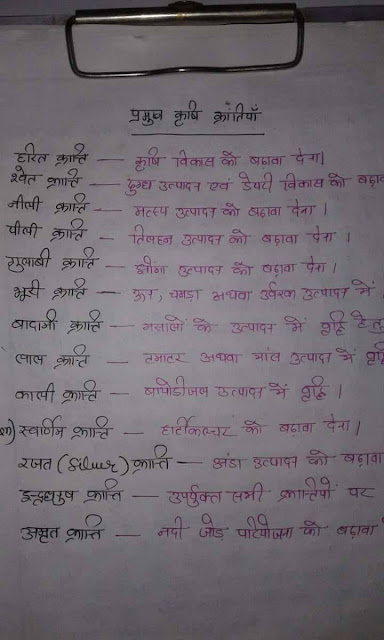 प्रमुख कृषि क्रांतियाँ
हरित क्रान्ति — कृषि विकास को बढ़ावा देना।
श्वेत क्रान्ति — दुग्ध उत्पादन एवं डेयरी विकास को बढ़ाव
नीली क्रान्ति — मत्स्य उत्पादन को बढ़ावा देना।
पीली क्रान्ति — तिलहन उत्पादन को बढ़ावा देना।
गुलाबी क्रान्ति — झींगा उत्पादन को बढ़ावा देना।
भूरी क्रान्ति — ऊन, चमड़ा अथवा उर्वरक उत्पादन में
बादामी क्रान्ति — मसालों के उत्पादन में वृद्धि हेतु
लाल क्रान्ति — टमाटर अथवा मांस उत्पादन में वृद्धि
काली क्रान्ति — बायोडीजल उत्पादन में वृद्धि।
स्वर्णिम क्रान्ति — हॉर्टीकल्चर को बढ़ावा देना।
रजत (Silver) क्रान्ति — अंडा उत्पादन को बढ़ावा
इन्द्रधनुष क्रान्ति — उपर्युक्त सभी क्रान्तियों पर
अमृत क्रान्ति — नदी जोड़ परियोजना को बढ़ावा